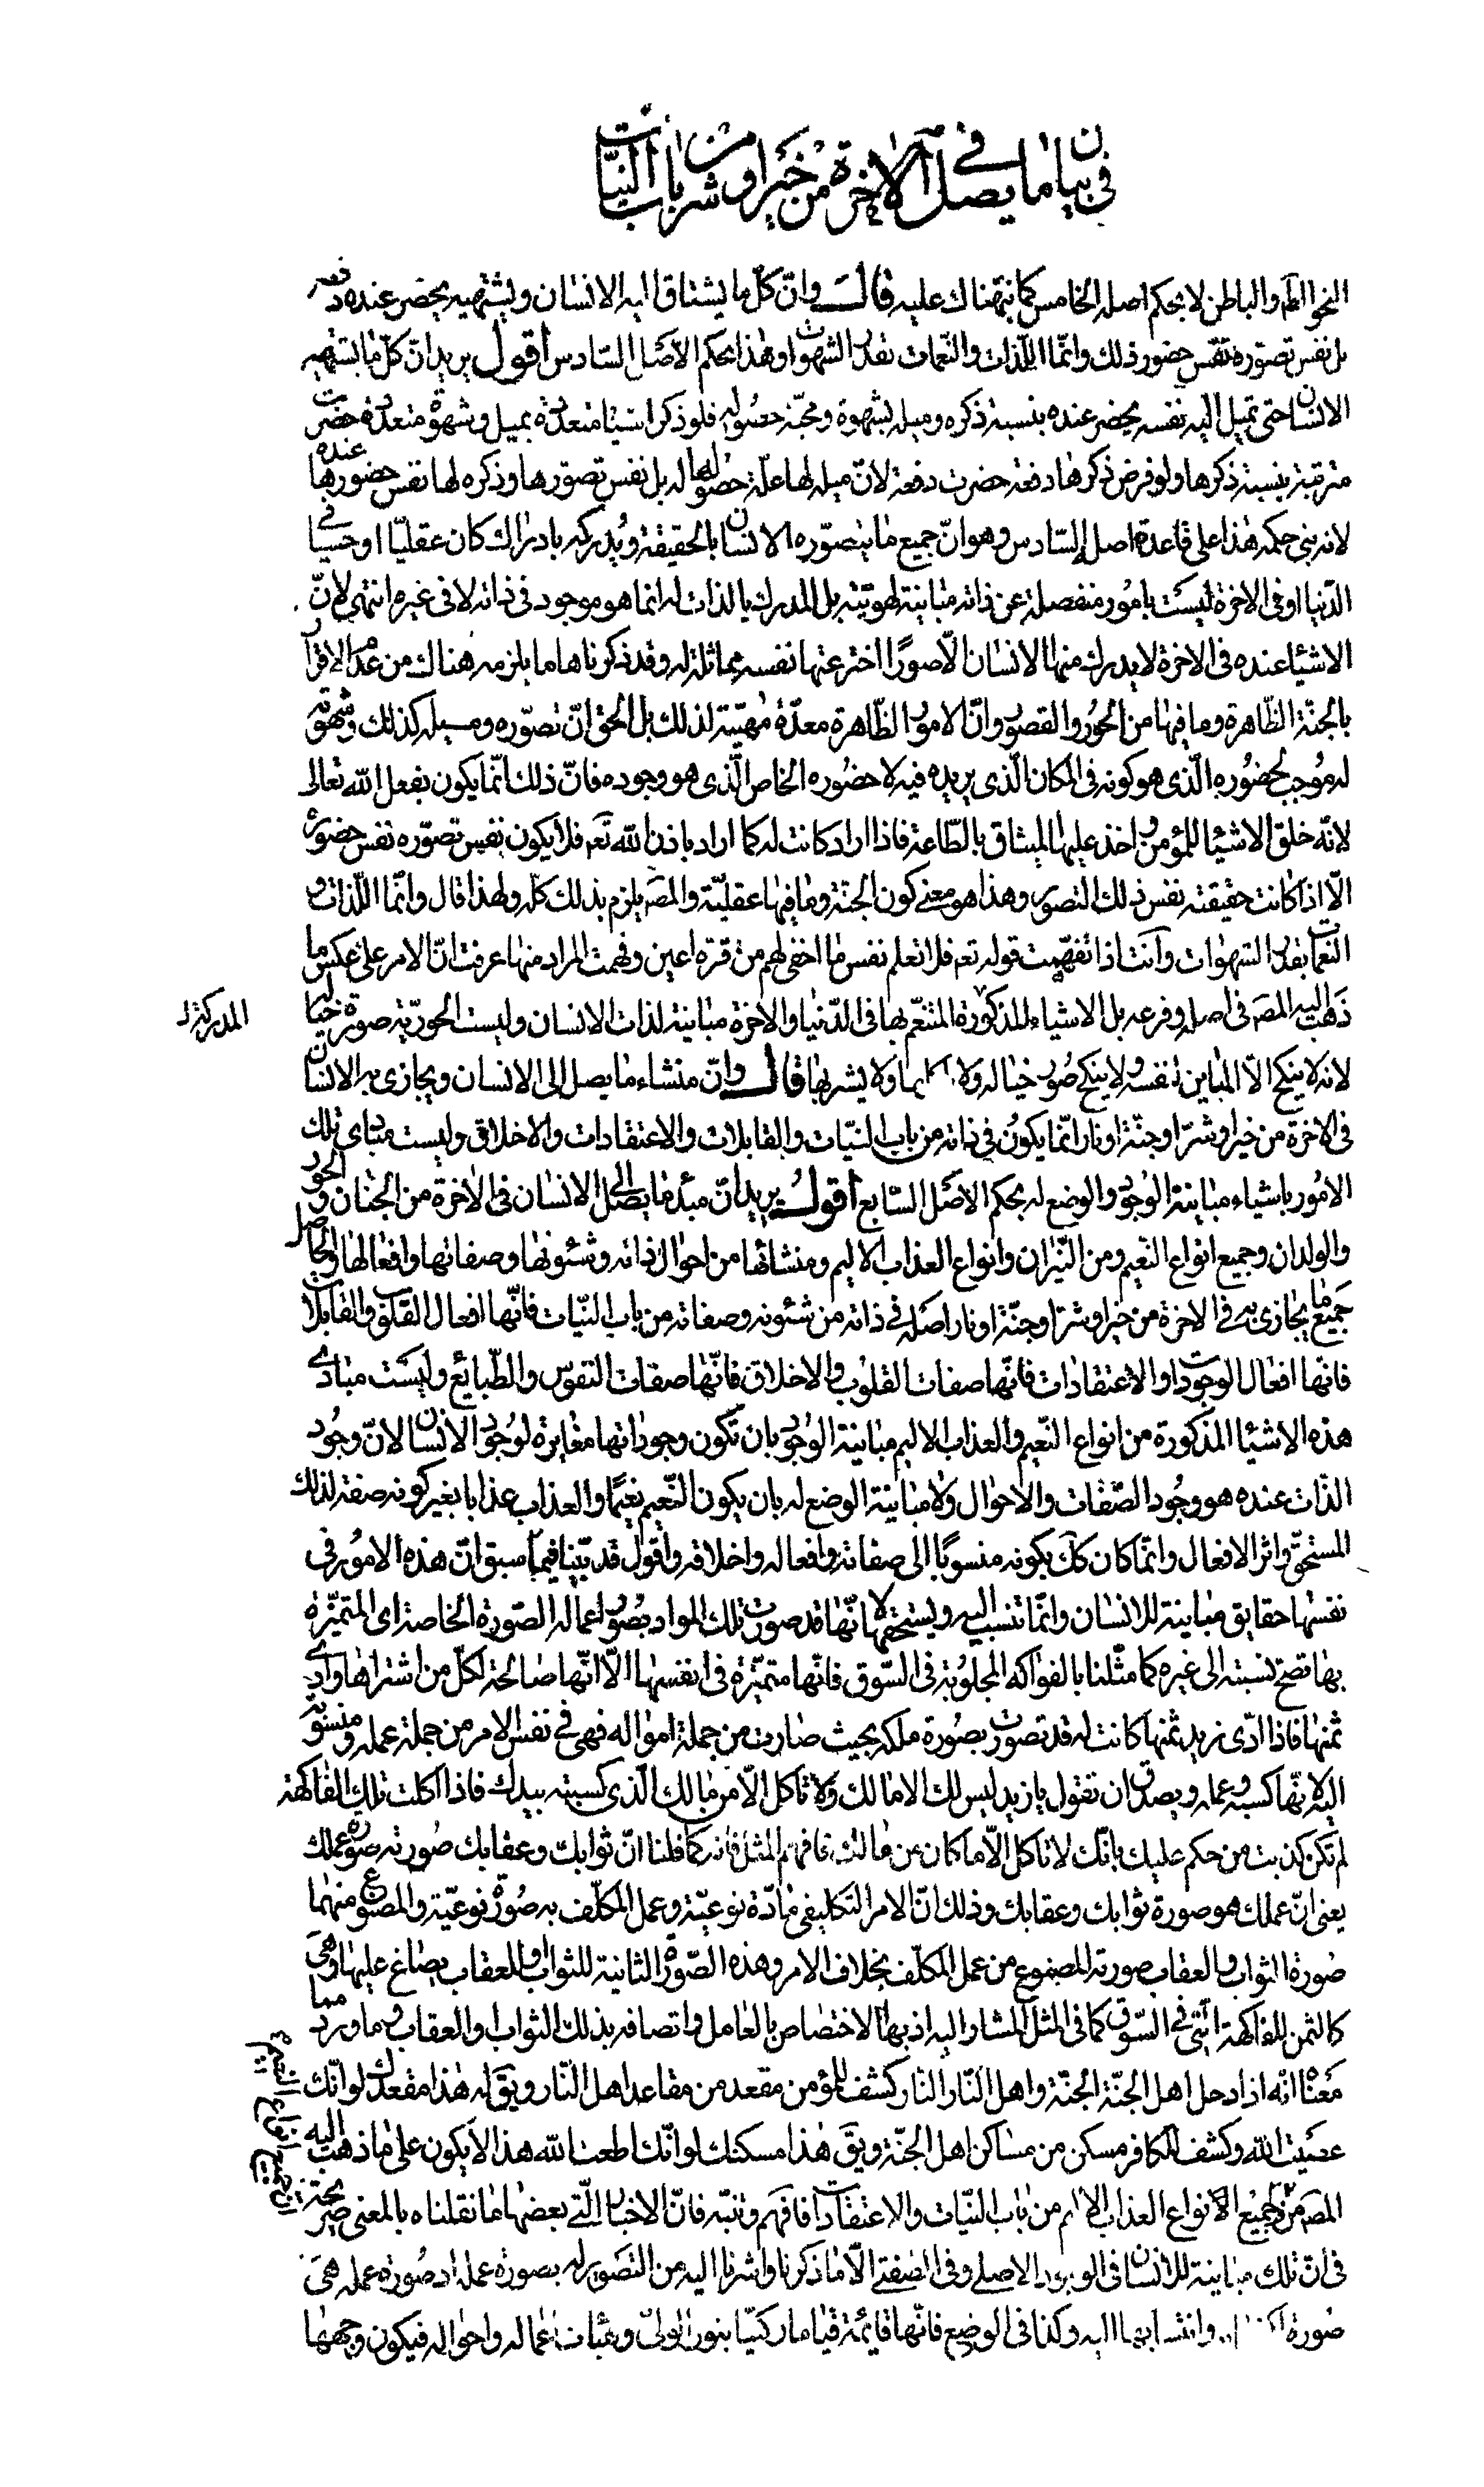 في بيان ما يصل في الاخرة من خير او شر من باب النيات
النحو الظم والباطن لا بحكم اصله الخامس كما نبهناك عليه قال وان كل ما يشتاق اليه الانسان ويشتهيه يحضر عنده دفعة
بل نفس تصوره نفس حضور ذلك وانما اللذات والنعمات بقدر الشهوات وهذا بحكم الاصل السادس اقول يريد ان كل ما يشتهيه
الانسان حتى تميل اليه نفسه يحضر عنده بنسبة ذكره وميله بشهوة ومحبة حصوله فلو ذكر اشيئا متعددة بميل وشهوة متعددة حضرت عنده
مترتبة بنسبة ذكرها ولو فرض ذكرها دفعة حضرت دفعة لان ميله لها علة حضولها له بل نفس تصورها وذكره لها نفس حضورها
لانه بنى حكمه هذا على قاعدة اصله السادس وهو ان جميع ما يتصوره الانسان بالحقيقة ويدركه بادراك كان عقليا او حسيا في
الدنيا او في الاخرة ليست بامور منفصلة عن ذاته مباينة لهويته بل المدرك بالذات له انما هو موجود في ذاته لا في غيره انتهى لان
الاشيئا عنده في الاخرة لا يدرك منها الانسان الا صورا اخترعتها نفسه مماثلة له وقد ذكرنا ها ما يلزمه هناك من عدم الاقرار
بالجنة الظاهرة وما فيها من الحور والقصور وان الامور الظاهرة معدة مهيئة لذلك بل الحق ان تصوره وميله كذلك وشهوته
له موجب لحضوره الذى هو كونه في المكان الذى يريده فيه لا حضوره الخاص الذى هو وجوده فان ذلك انما يكون بفعل الله تعالى
لانه خلق الاشيئا للمؤمن واخذ عليها الميثاق بالطاعة فاذا اراد كانت له كما اراد باذن الله تعم فلا يكون نفس تصوره نفس حضوره
الا اذا كانت حقيقته نفس ذلك التصور وهذا هو معنى كون الجنة وما فيها عقلية والمصم يلزم بذلك كله ولهذا قال وانما اللذات و
النعمات بقدر الشهوات وانت اذا تفهمت قوله تعم فلا تعلم نفس ما اخفى لهم من قرة اعين وفهمت المراد منها عرفت ان الامر على عكس ما
ذهب اليه المصم في اصله وفرعه بل الاشياء المذكورة المتنعم بها في الدنيا والاخرة مباينة لذات الانسان وليست الحورية صورة خياله
المدركة له
لانه لا ينكح الا المباين لنفسه ولا ينكح صور خياله ولا ولا يشربها قال وان منشاء ما يصل الى الانسان ويجازى به الانسان
في الاخرة من خير او شر او جنة او نار انما يكون في ذاته من باب النيات والقابلات والاعتقادات والاخلاق وليست مبادى تلك
الامور باشياء مباينة الوجود والوضع له بحكم الاصل السابع اقول يريد ان مبدء ما يصل الى الانسان في الاخرة من الجنان والحور
والولدان وجميع انواع النعيم ومن النيران وانواع العذاب الاليم ومنشائها من احوال ذاته وشئونها وصفاتها وافعالها والحاصل
جميع ما يجازى به في الاخرة من خير او شر او جنة او نار اصله في ذاته من شئونه وصفاته من باب النيات فانها افعال القلوب والقابلات
فانها افعال الوجودات او الاعتقادات فانها صفات القلوب والاخلاق فانها صفات النفوس والطبايع وليست مبادى
هذه الاشيئا المذكورة من انواع النعيم والعذاب الاليم مباينة الوجود بان تكون وجوداتها مغايرة لوجود الانسان لان وجود
الذات عنده هو وجود الصفات والاحوال ولا مباينة الوضع له بان يكون النعيم نعيما والعذاب عذابا بغير كونه صفة لذلك
المستحق واثر الافعال وانما كان كك بكونه منسوبا الى صفاته وافعاله واخلاقه واقول قد بينا فيما سبق ان هذه الامور في
نفسها حقايق مباينة للانسان وانما تنسب اليه ويستحقها لانها قد صورت تلك المواد بصور اعماله الصورة الخاصة اى المتميزة
بها تصح نسبته الى غيره كما مثلنا بالفواكه المجلوبة في السوق فانها متميزة في انفسها الا انها صالحة لكل من اشتراها وادى
ثمنها فاذا ادى زيد ثمنها كانت له قد تصورت بصورة ملكه بحيث صارت من جملة امواله فهى في نفس الامر من جملة عمله ومنسوبة
اليه لانها كسبه وعمله ويصدق ان تقول يا زيد ليس لك الا مالك ولا تاكل الا من مالك الذى كسبته بيدك فاذا اكلت تلك الفاكهة
لم تكن كذبت من حكم عليك بانك لا تاكل الا ما كان من مالك فافهم المثل فانه كما قلنا ان ثوابك وعقابك صورته صورة عملك
يعنى ان عملك هو صورة ثوابك وعقابك وذلك ان الامر التكليفى مادة نوعية وعمل المكلف به صورة نوعية والمصنوع منهما
صورة الثواب والعقاب صورته المصنوع من عمل المكلف بخلاف الامر وهذه الصورة الثانية للثواب والعقاب يصاغ عليها وهى
كالثمن للفاكهة التى في السوق كما في المثل المشار اليه اذ بها الاختصاص بالعامل واتصافه بذلك الثواب والعقاب ومما ورد مما
معناه انه اذا دخل اهل الجنة الجنة واهل النار النار كشف للمؤمن مقعد من مقاعد اهل النار ويق له هذا مقعدك لو انك
عصيت الله وكشف للكافر مسكن من مساكن اهل الجنة ويق هذا مسكنك لو انك اطعت الله هذا لا يكون على ما ذهب اليه
المصم من جميع الانواع العذاب من باب النيات والاعتقادات فافهم وتنبه فان الاخبار التى بعضها ما نقلناه بالمعنى صريحة
ان جميع انواع النعيم و
في ان تلك مباينة للانسان في الوجود الاصلى وفي الصفتى الا ما ذكرنا واشرنا اليه من التصوير له بصورة عمله اذ صورة عمله هى
صورة وانتسابها اليه وكذا في الوضع فانها قائمة قياما ركنيا بنور الولى وبهيئات اعماله واحواله فيكون وجهها